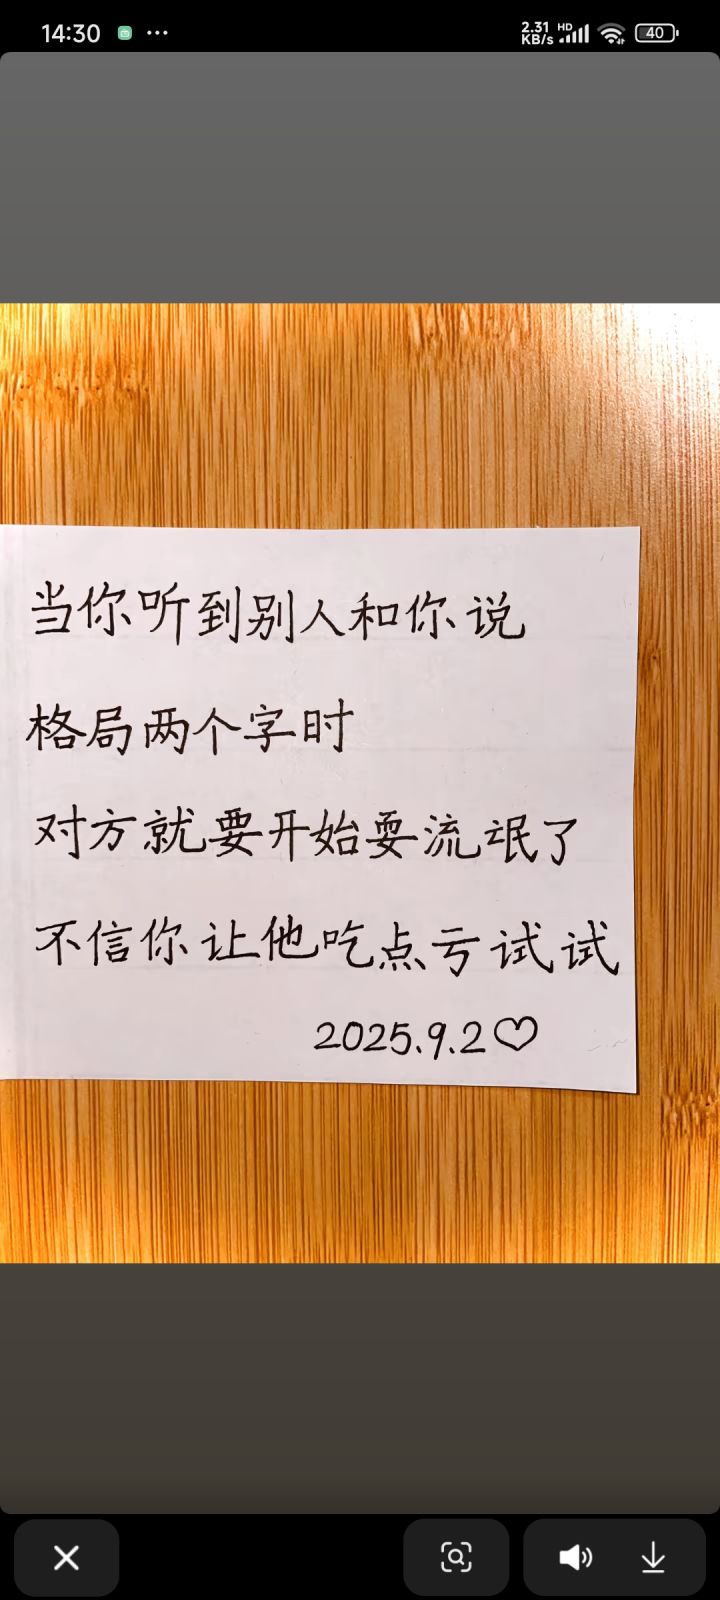 14:30
2.31 KB/s HD 40
当你听到别人和你说
格局两个字时
对方就要开始耍流氓了
不信你让他吃点亏试试
2025.9.2♡